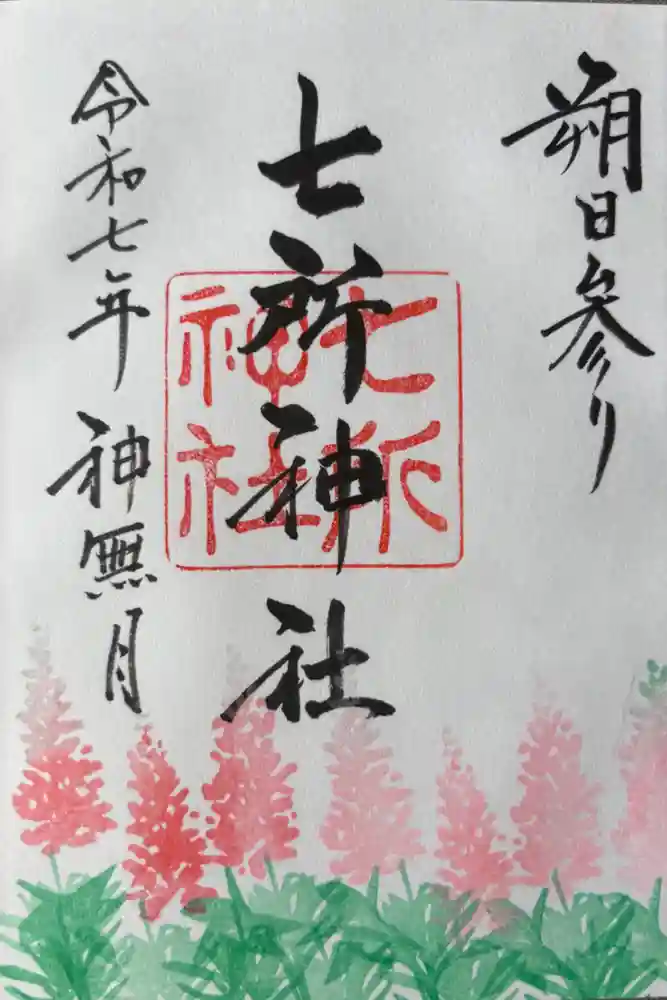 朔日参り
七所神社
七所神社
令和七年 神無月